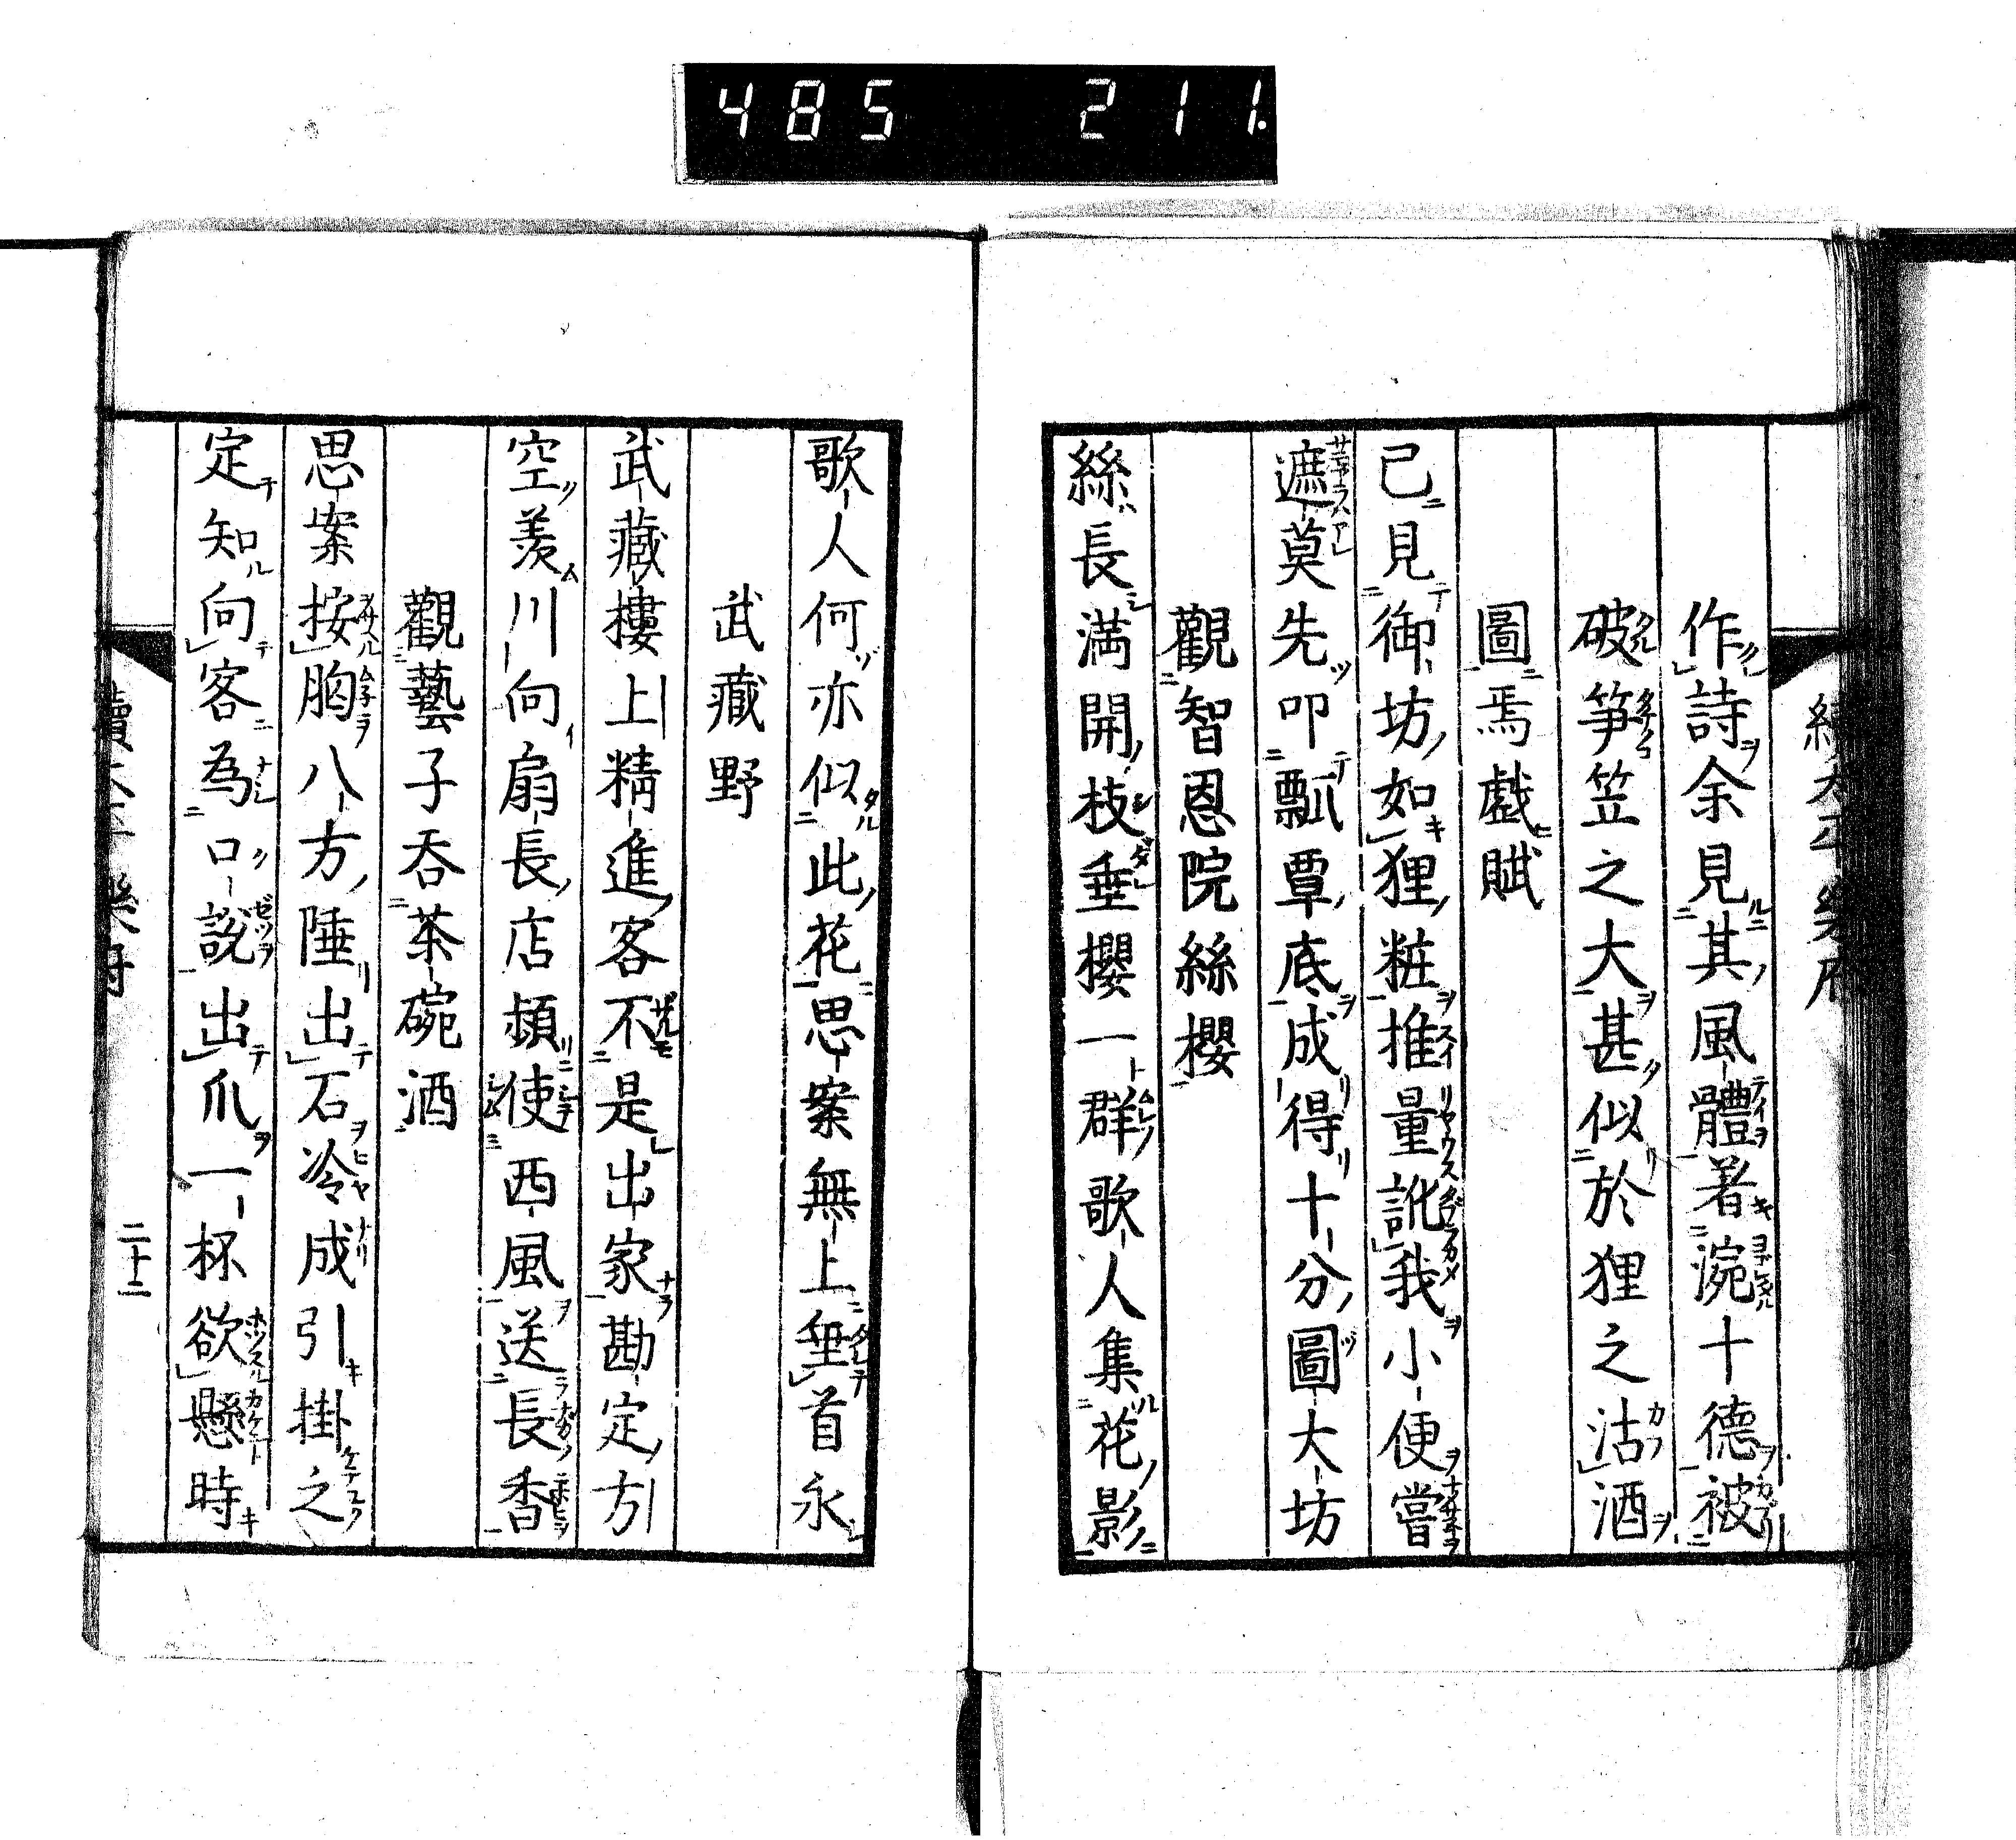 485 211.
續太平樂府
作詩余見其風體著涴十德被
破笋笠之大甚似於狸之沽酒
圖焉戯賦
已見御坊如狸粧推量訛我小便嘗
遮莫先叩瓢覃底成得十分圖大坊
觀智恩院絲櫻
絲長満開枝垂櫻一群歌人集花影
歌人何亦似此花思案無上垂首永
武藏野
武藏樓上精進客不是出家勘定方
空羨川向扇長店頻使西風送長香
觀藝子呑茶碗酒
思案按胸八方陲出石冷成引掛之
定知向客為口說出爪一杯欲懸時
續太平樂府
二十二